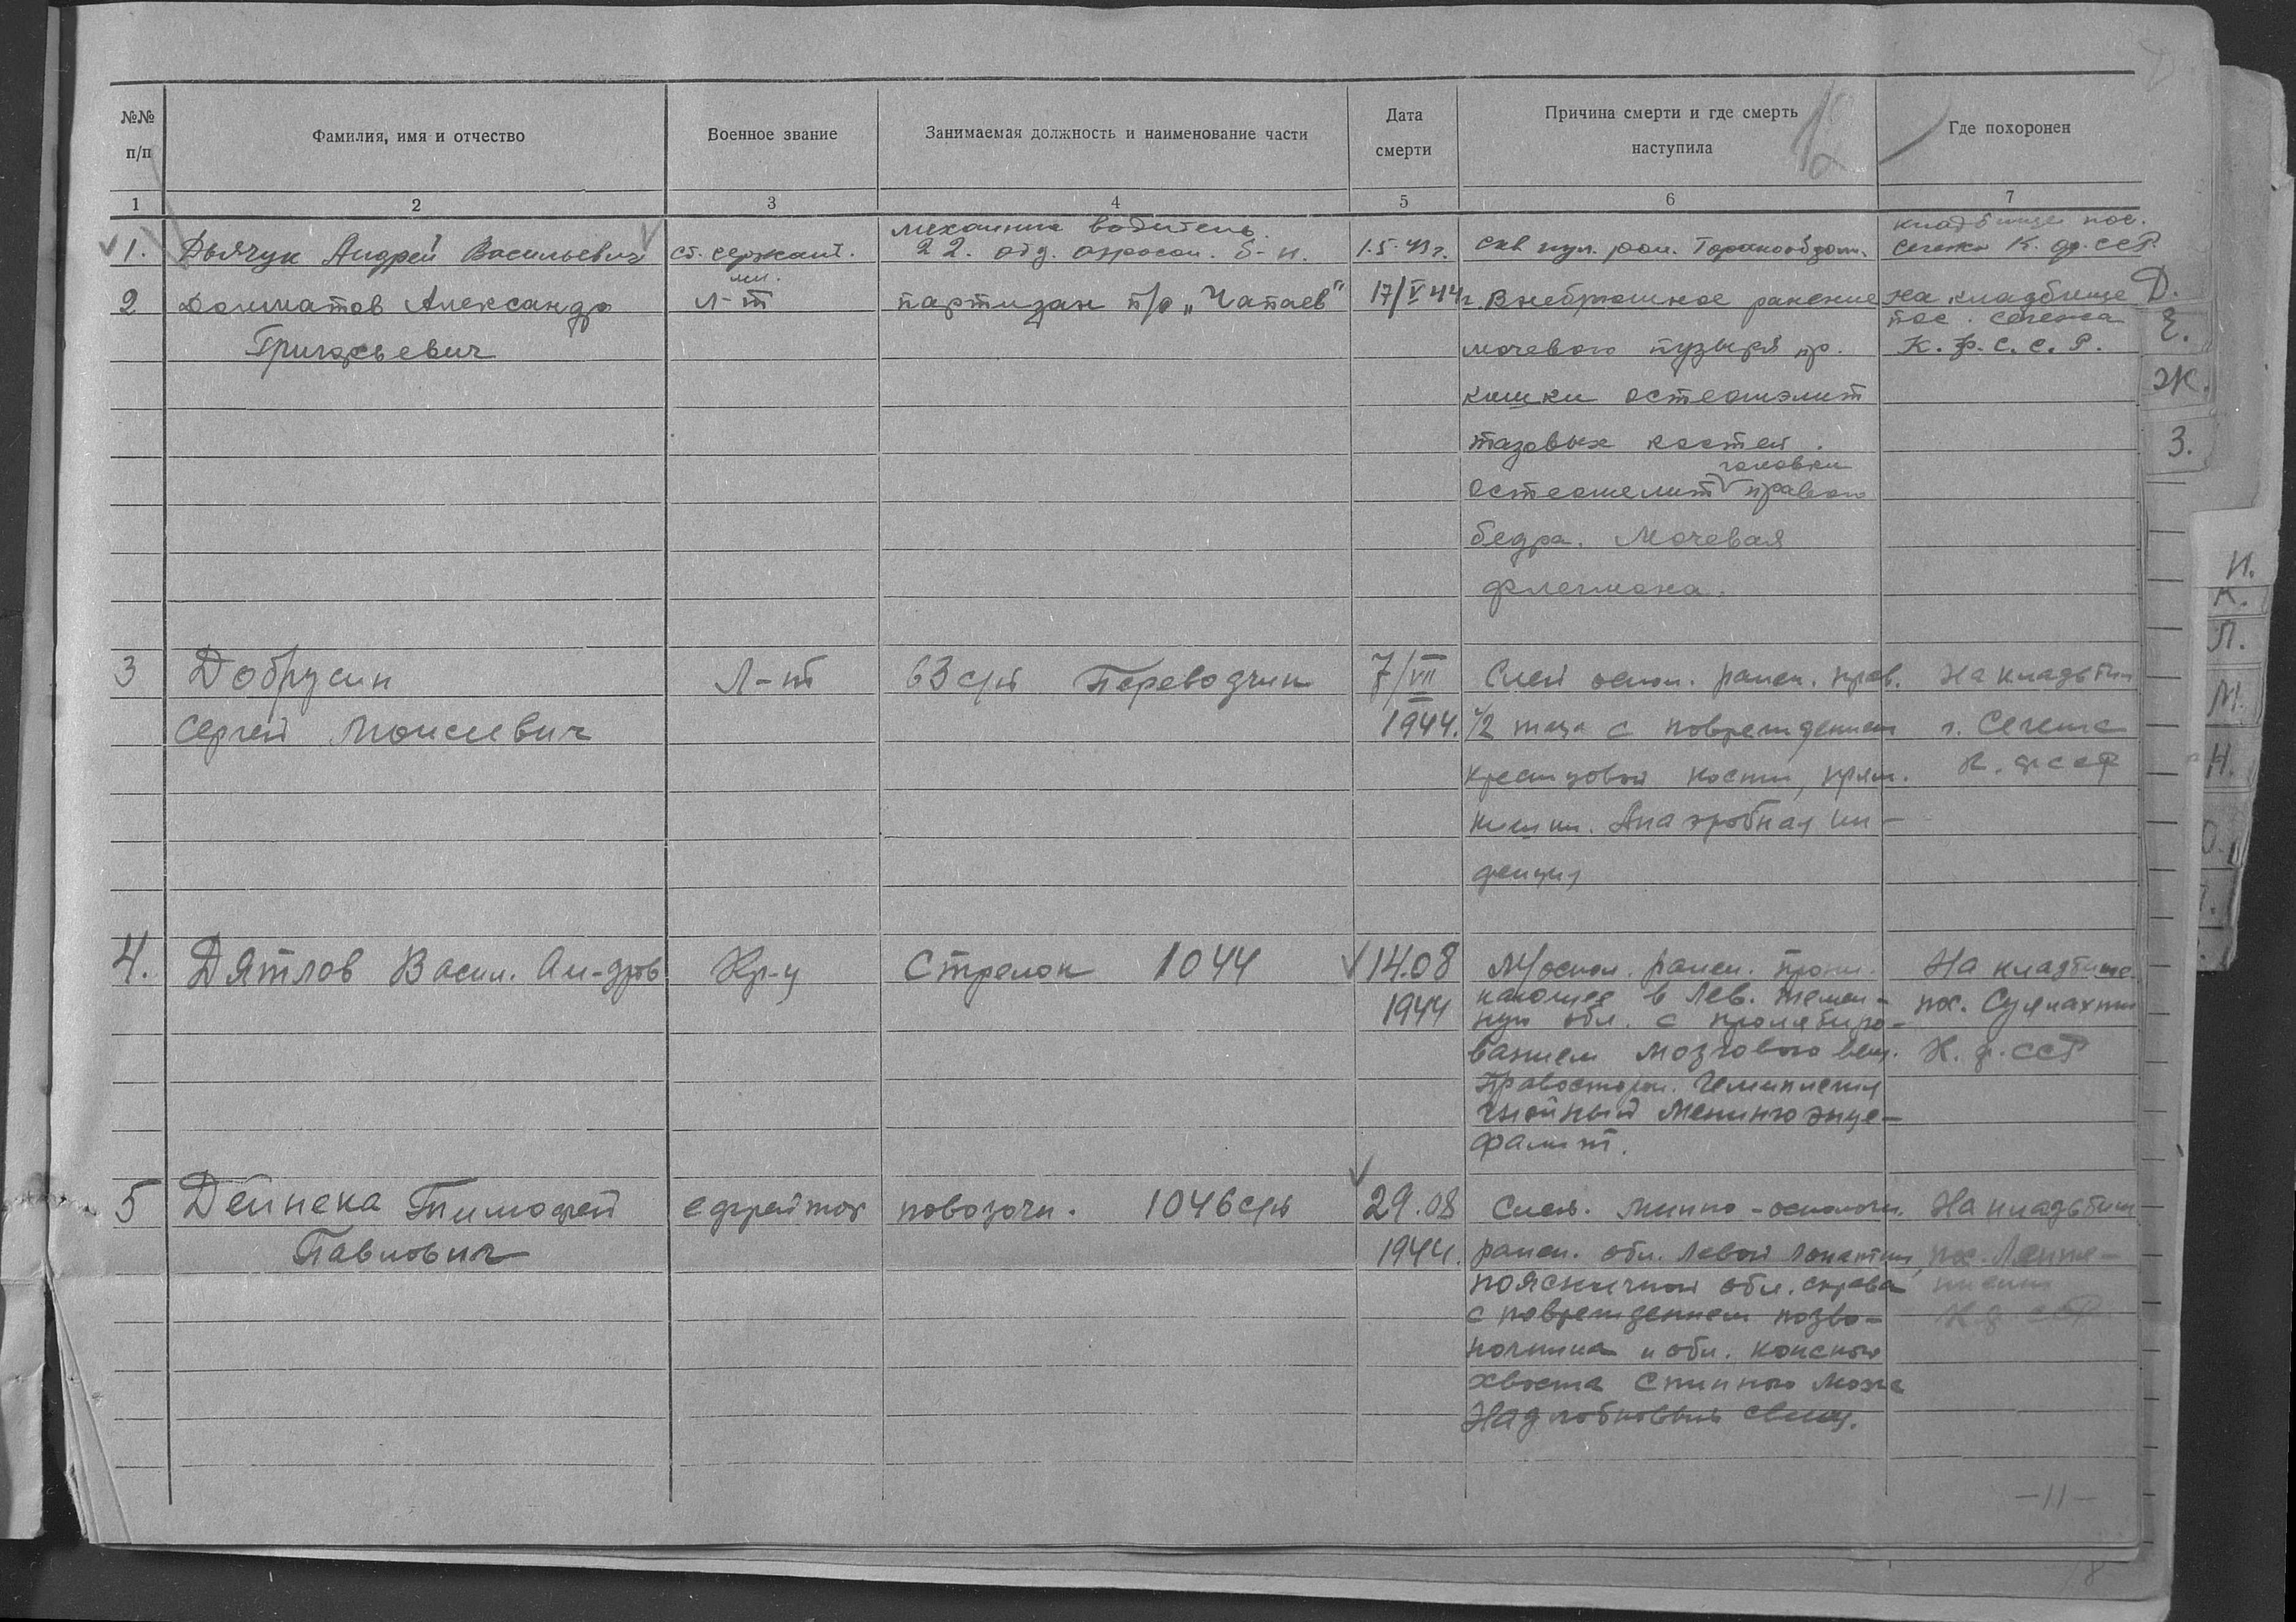 №№ п/п
Фамилия, имя и отчество
Военное звание
Занимаемая должность и наименование части
Дата смерти
Причина смерти и где смерть наступила
Где похоронен
1 2 3 4 5 6 7
12
1. Дьячук Андрей Васильевич
ст. сержант.
механик водитель.
22. отд. аэросан. б-н.
1.5.43г.
скв пул. ран.
кладбище пос.
Сегежа К.ф.ССР.
2 Долматов Александр
Григорьевич
мл.
л-т
партизан п/о „Чапаев“
17/V 44г.
Внебрюшное ранение
мочевого пузыря пр.
кишки остеомэлит
тазовых костей.
головки
остеомелит правого
бедра. Мочевая
флегмона.
на кладбище
пос. Сегежа
К.ф.С.С.Р.
3 Добрусин
Сергей Моисеевич
Л-т
63 сп Переводчик
7/VII
1944.
Слеп оскол. ранен. прав.
1/2 таза с повреждением
крестцовой кости, прям.
кишки. Анаэробная ин-
фекция
На кладбищ
г. Сегежа
К.ф ССР
4. Дятлов Васил. Ан-дров
Кр-ц
Стрелок 1044
14.08
1944
М/оскол. ранен. прони-
кающее в лев. темен-
ную обл. с пролабиро-
ванием мозгового вещ.
Правосторон. Гемиплегия
гнойный менингоэнце-
фалит.
На кладбище
пос. Суоякхи
К.ф.ССР
5 Дейнека Тимофей
Павлович
ефрейтор
повозочн. 1046 сп
29.08
1944.
Слеп. минно-осколочн.
ранен. обл. левой лопатки,
поясничной обл. справа
с повреждением позво-
ночника и обл. конского
хвоста спинного мозга
Надлобковый свищ.
На кладбищ
К.ф ССР
-11-
Д.
Е.
Ж.
З.
И.
К.
Л.
М.
Н.
О.